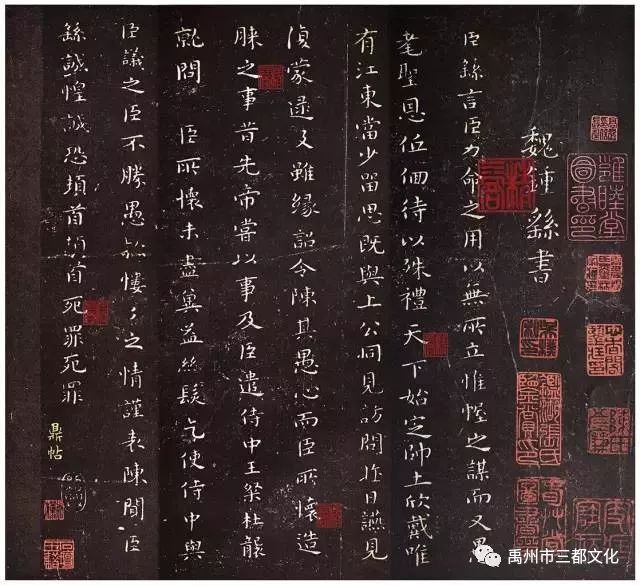 魏鍾繇書
臣繇言臣力命之用以無所立惟幄之謀而又愚
耄聖恩低佪待以殊禮 天下始定帥土欣戴唯
有江東當少留思既與上公同見訪問昨日讌見
復蒙逮及雖緣詔令陳其愚心而臣所懷造
膝之事昔先帝嘗以事及臣遣侍中王粲杜襲
就問 臣所懷未盡冀益絲髮乞使侍中與
臣議之臣不勝愚款慺々之情謹表陳聞臣
繇誠惶誠恐頓首頓首死罪死罪
鼎帖
睢陸堂圖書印
禹州市三都文化